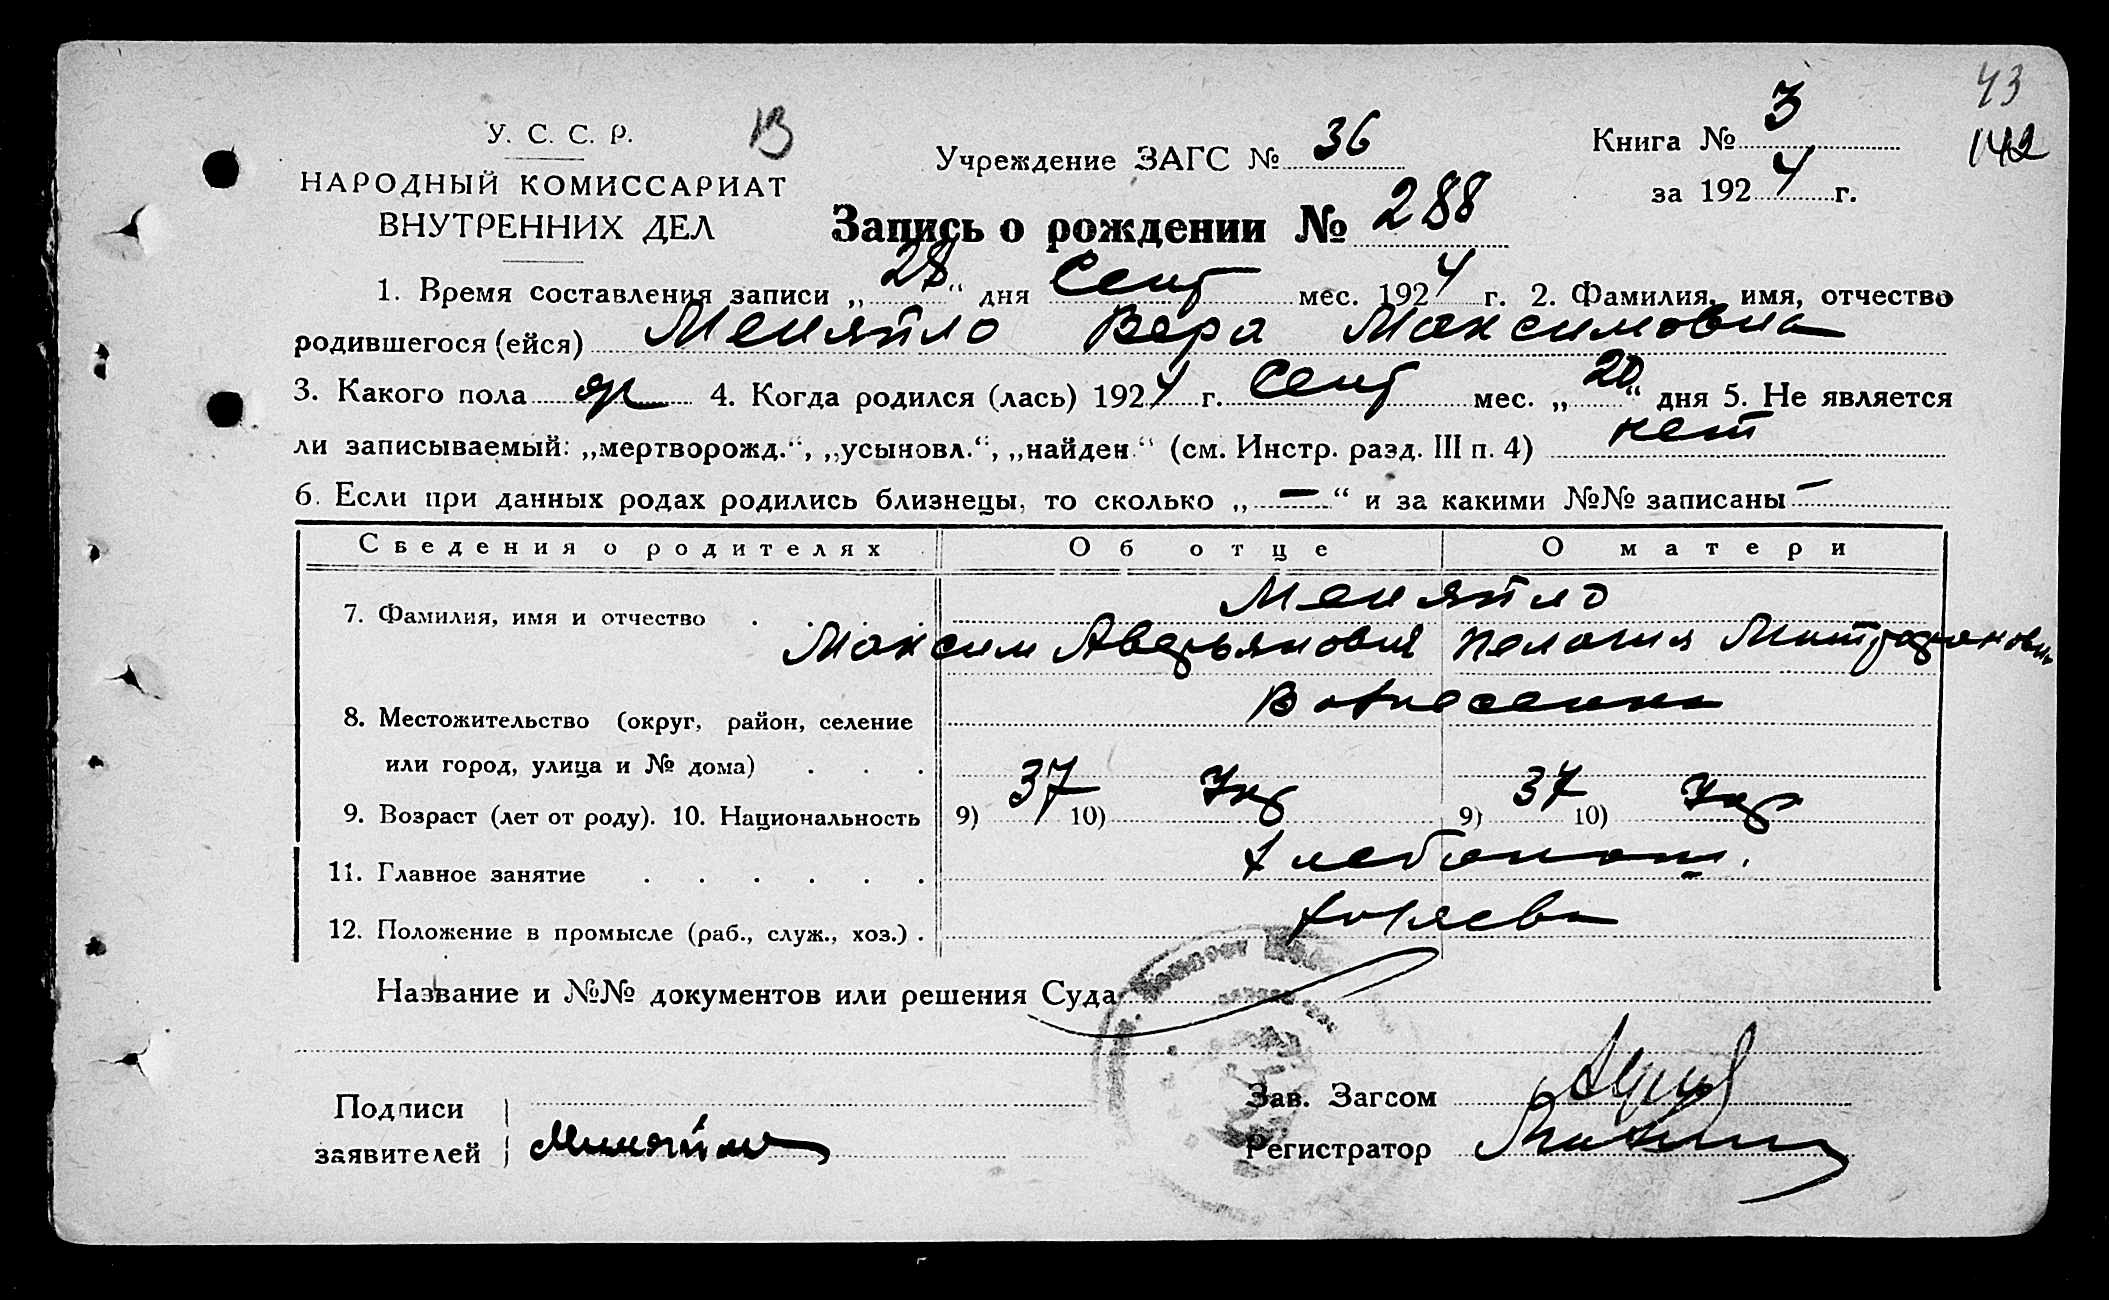 43
У. С. С. Р. В Учреждение ЗАГС № 36 Книга № 3 142
НАРОДНЫЙ КОМИССАРИАТ за 1924 г.
ВНУТРЕННИХ ДЕЛ Запись о рождении № 288
1. Время составления записи „28“ дня Сент мес. 1924 г. 2. Фамилия, имя, отчество
родившегося (ейся) Меняйло Вера Максимовна
3. Какого пола 4. Когда родился (лась) 1924 г. Сент мес. „20“ дня 5. Не является
ли записываемый: „мертворожд.“, „усыновл.“, „найден.“ (см. Инстр. разд. III п. 4) нет
6. Если при данных родах родились близнецы, то сколько „—“ и за какими №№ записаны —
Сведения о родителях Об отце О матери
7. Фамилия, имя и отчество . . . . Меняйло
Максим Аверьянович Пелагия Митрофановн
8. Местожительство (округ, район, селение Вознесенка
или город, улица и № дома) . . .
9. Возраст (лет от роду). 10. Национальность 9) 37 10) Укр 9) 37 10) Укр
11. Главное занятие . . . . . . Хлебопаш.
12. Положение в промысле (раб., служ., хоз.) . хозяева
Название и №№ документов или решения Суда
Подписи Зав. Загсом
заявителей Меняйло Регистратор